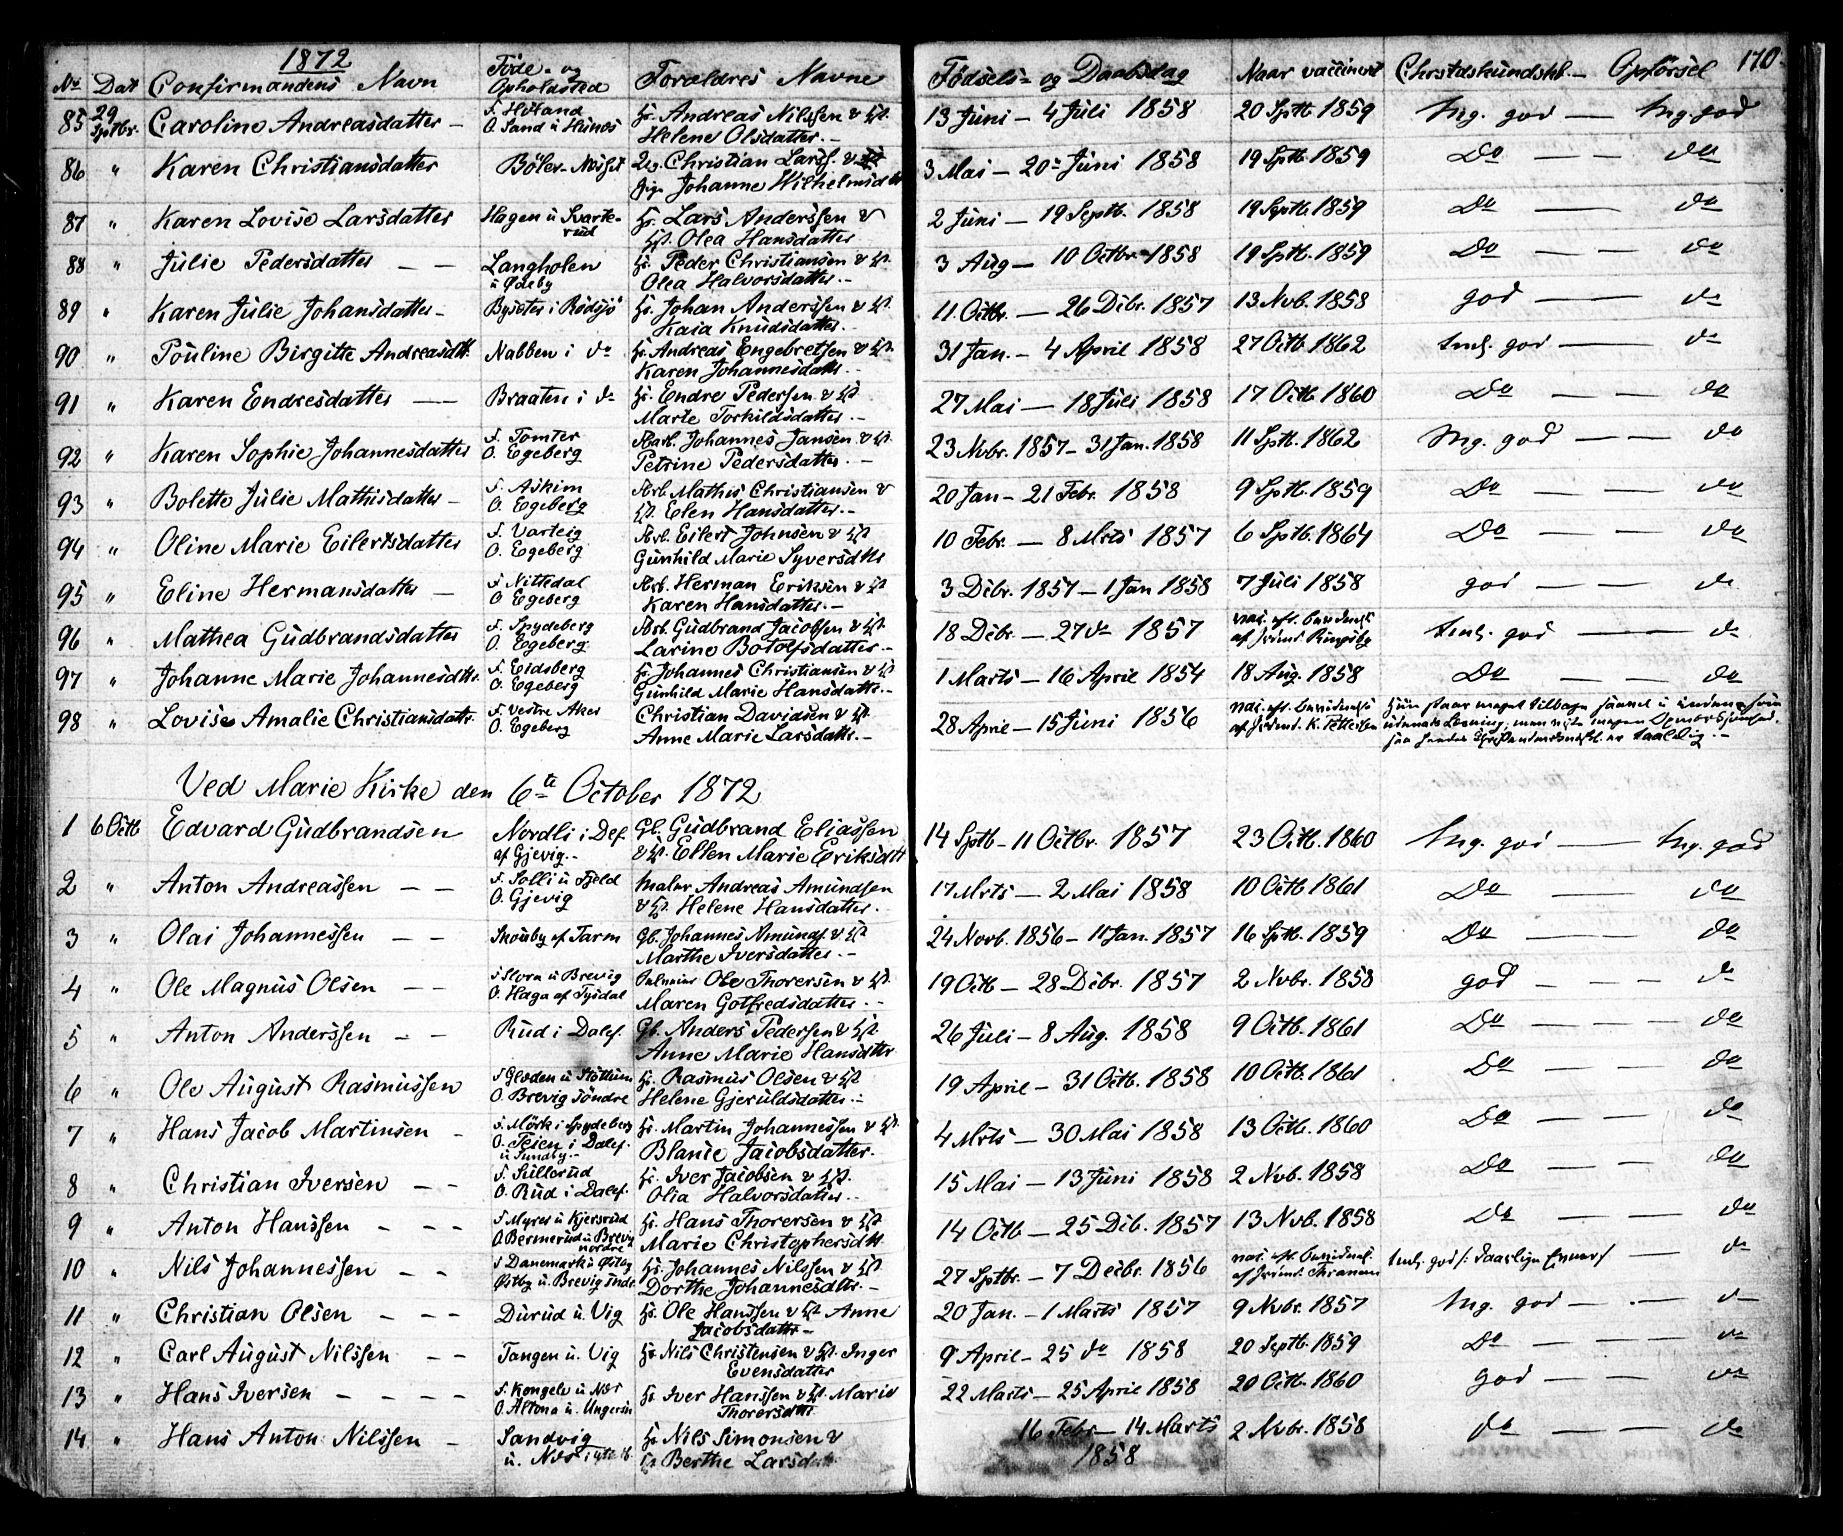 1872
170
No Dat Confirmandens Navn Föde- og Opholdsted Forældres Navne Födsels- og Daabsdag Naar vaccineret Christdskundskb. — Opförsel
85 29 Septbr. Caroline Andreasdatter — F. Hôland O. Sand u. Hunæs Andreas Nilssen & Helene Olsdatter 13 Juni — 4 Juli 1858 20 Septb 1859 Mg. god — Mg. god
86 " Karen Christiansdatter Böler - Christian Larss. & Johanne Wilhelmsdtr 3 Mai — 20 Juni 1858 19 Septb. 1859 Do — — do
87 " Karen Lovise Larsdatter Hagen u Svarterud Lars Anderssen & Olea Hansdatter 2 Juni — 19 Septb. 1858 19 Septb. 1859 Do — do
88 " Julie Pedersdatter — — Langholen u Ödeby Peder Christiansen & Olea Halvorsdatter 3 Aug — 10 Octbr. 1858 19 Septb. 1859 Do — — do
89 " Karen Julie Johansdatter — i Rödsjö Johan Anderssen & Kaia Knudsdatter 11 Octbr. — 26 Dcbr. 1857 13 Nvb. 1858 god — — do
90 " Pouline Birgitte Andreasdtr. Nabben i do Andreas Engebretsen & Karen Johannesdattr. 31 Jan. — 4 April 1858 27 Octb. 1862 tml. god — do
91 " Karen Endresdatter — Braaten i do Endre Pedersen & Marte Torkildsdatter 27 Mai — 18 Juli 1858 17 Octb. 1860 Do — — do
92 " Karen Sophie Johannesdatter F. Tomter O. Egeberg Arb. Johannes Jansen & Petrine Pedersdatter. — 23 Nvbr. 1857 — 31 Jan. 1858 11 Septb. 1862 Mg. god — — do
93 " Bolette Julie Mathisdatter — F. Askim O. Egeberg Arb. Mathis Christiansen & Elen Hansdatter. — 20 Jan — 21 Febr. 1858 9 Septb. 1859 Do — — do
94 " Oline Marie Eilertsdatter F. Varteig O. Egeberg Arb. Eilert Johnsen & Gunhild Marie Syversdtr 10 Febr. — 8 Mrts 1857 6 Septb. 1864 Do — — do
95 " Eline Hermansdatter — F. Nittedal O. Egeberg Arb. Herman Eriksen & Karen Hansdatter. — 3 Dcbr. 1857 — 1 Jan 1858 7 Juli 1858 god — — do
96 " Mathea Gudbrandsdatter F. Spydeberg O. Egeberg Arb. Gudbrand Jacobsen & Larine Botolfsdatter. — 18 Dcbr — 27 do 1857 tml. god — do
97 " Johanne Marie Johannesdtr. F. Eidsberg O. Egeberg Johannes Christiansen & Gunhild Marie Hansdattr. — 1 Marts — 16 April 1854 18 Aug. 1858 Do — — do
98 " Lovise Amalie Christiansdattr. F. Vestre Aker O. Egeberg Christian Davidsen & Anne Marie Larsdattr. — 28 April — 15 Juni 1856
Ved Marie Kirke den 6te October 1872
1 6 Octb Edvard Gudbrandsen Nordli i Dlf. af Gjevig. — Gb. Gudbrand Eliassen & Ellen Marie Eriksdtr 14 Septb — 11 Octbr. 1857 23 Octb. 1860 Mg. god — Mg. god
2 " Anton Andreassen — — F. Solli u Fjeld O. Gjevig Maler Andreas Amundsen & Helene Hansdatter. 17 Mrts — 2 Mai 1858 10 Octb 1861 Do — — do
3 " Olai Johannessen — — Skouby af Tarm Gb. Johannes Amunds. & Marthe Iversdatter. — 24 Novb. 1856 — 11 Jan. 1857 16 Septb. 1859 Do — — do
4 " Ole Magnus Olsen — — u Brevig O. Haga af Tysdal Ole Thoresen & Maren Gotfredsdatter. 19 Octb — 28 Dcbr. 1857 2 Nvbr. 1858 god — — — do
5 " Anton Anderssen — — Rud i Dalef. Gb. Anders Pedersen & Anne Marie Hansdttr. 26 Juli — 8 Aug. 1858 9 Octb. 1861 Do — — — do
6 " Ole August Rasmussen F. Gloden u Stöttum O. Brevig Söndre Rasmus Olsen & Helene Gjeruldsdatter. 19 April — 31 Octb. 1858 10 Octb. 1861 Do — — — do
7 " Hans Jacob Martinsen — F. Mörk i Spydeberg O. Teien i Dalef. u Sundby. — Martin Johannessen & Blanse Jacobsdatter. 4 Mrts — 30 Mai 1858 13 Octb. 1860 Do — — do
8 " Christian Iversen — — F. Sullerud O. Rud i Dalef. Iver Jacobsen & Olia Halvorsdatter. 15 Mai — 13 Juni 1858 2 Nvb. 1858 Do — — do
9 " Anton Hanssen — — — F. Myrer u Kjersrud O. Bermerud u Brevig nordre Hans Thoresen & Marie Christophersdtr. 14 Octb — 25 Dcb. 1857 13 Nvb. 1858 Do — — do
10 " Nils Johannessen — — F. Danemark u Östby Östby u. Brevig Johannes Nilssen & Dorthe Johannesdtr. — 27 Septbr. — 7 Decbr. 1856 tml. god — do
11 " Christian Olsen — — — Durud u. Vig Ole Hanssen & Anne Jacobsdattr — 20 Jan. — 1 Marts 1857 9 Nvbr. 1857 Mg. god — — — do
12 " Carl August Nilssen — — Tangen u. Vig Nils Christensen & Inger Evensdatter 9 April — 25 do 1858 20 Septb. 1859 Do — — — do
13 " Hans Iversen — — — — F. Kongele u Nær O. Altona u. Ungersn Iver Hanssen & Marie Thorersdtr. 22 Marts — 25 April 1858 20 Octb. 1860 god — — — do
14 " Hans Anton Nilssen — Sandvig u. Nær Nils Simonsen & Berthe Larsdatr. 16 Febr — 14 Marts 1858 2 Nvbr. 1858 do — — — do